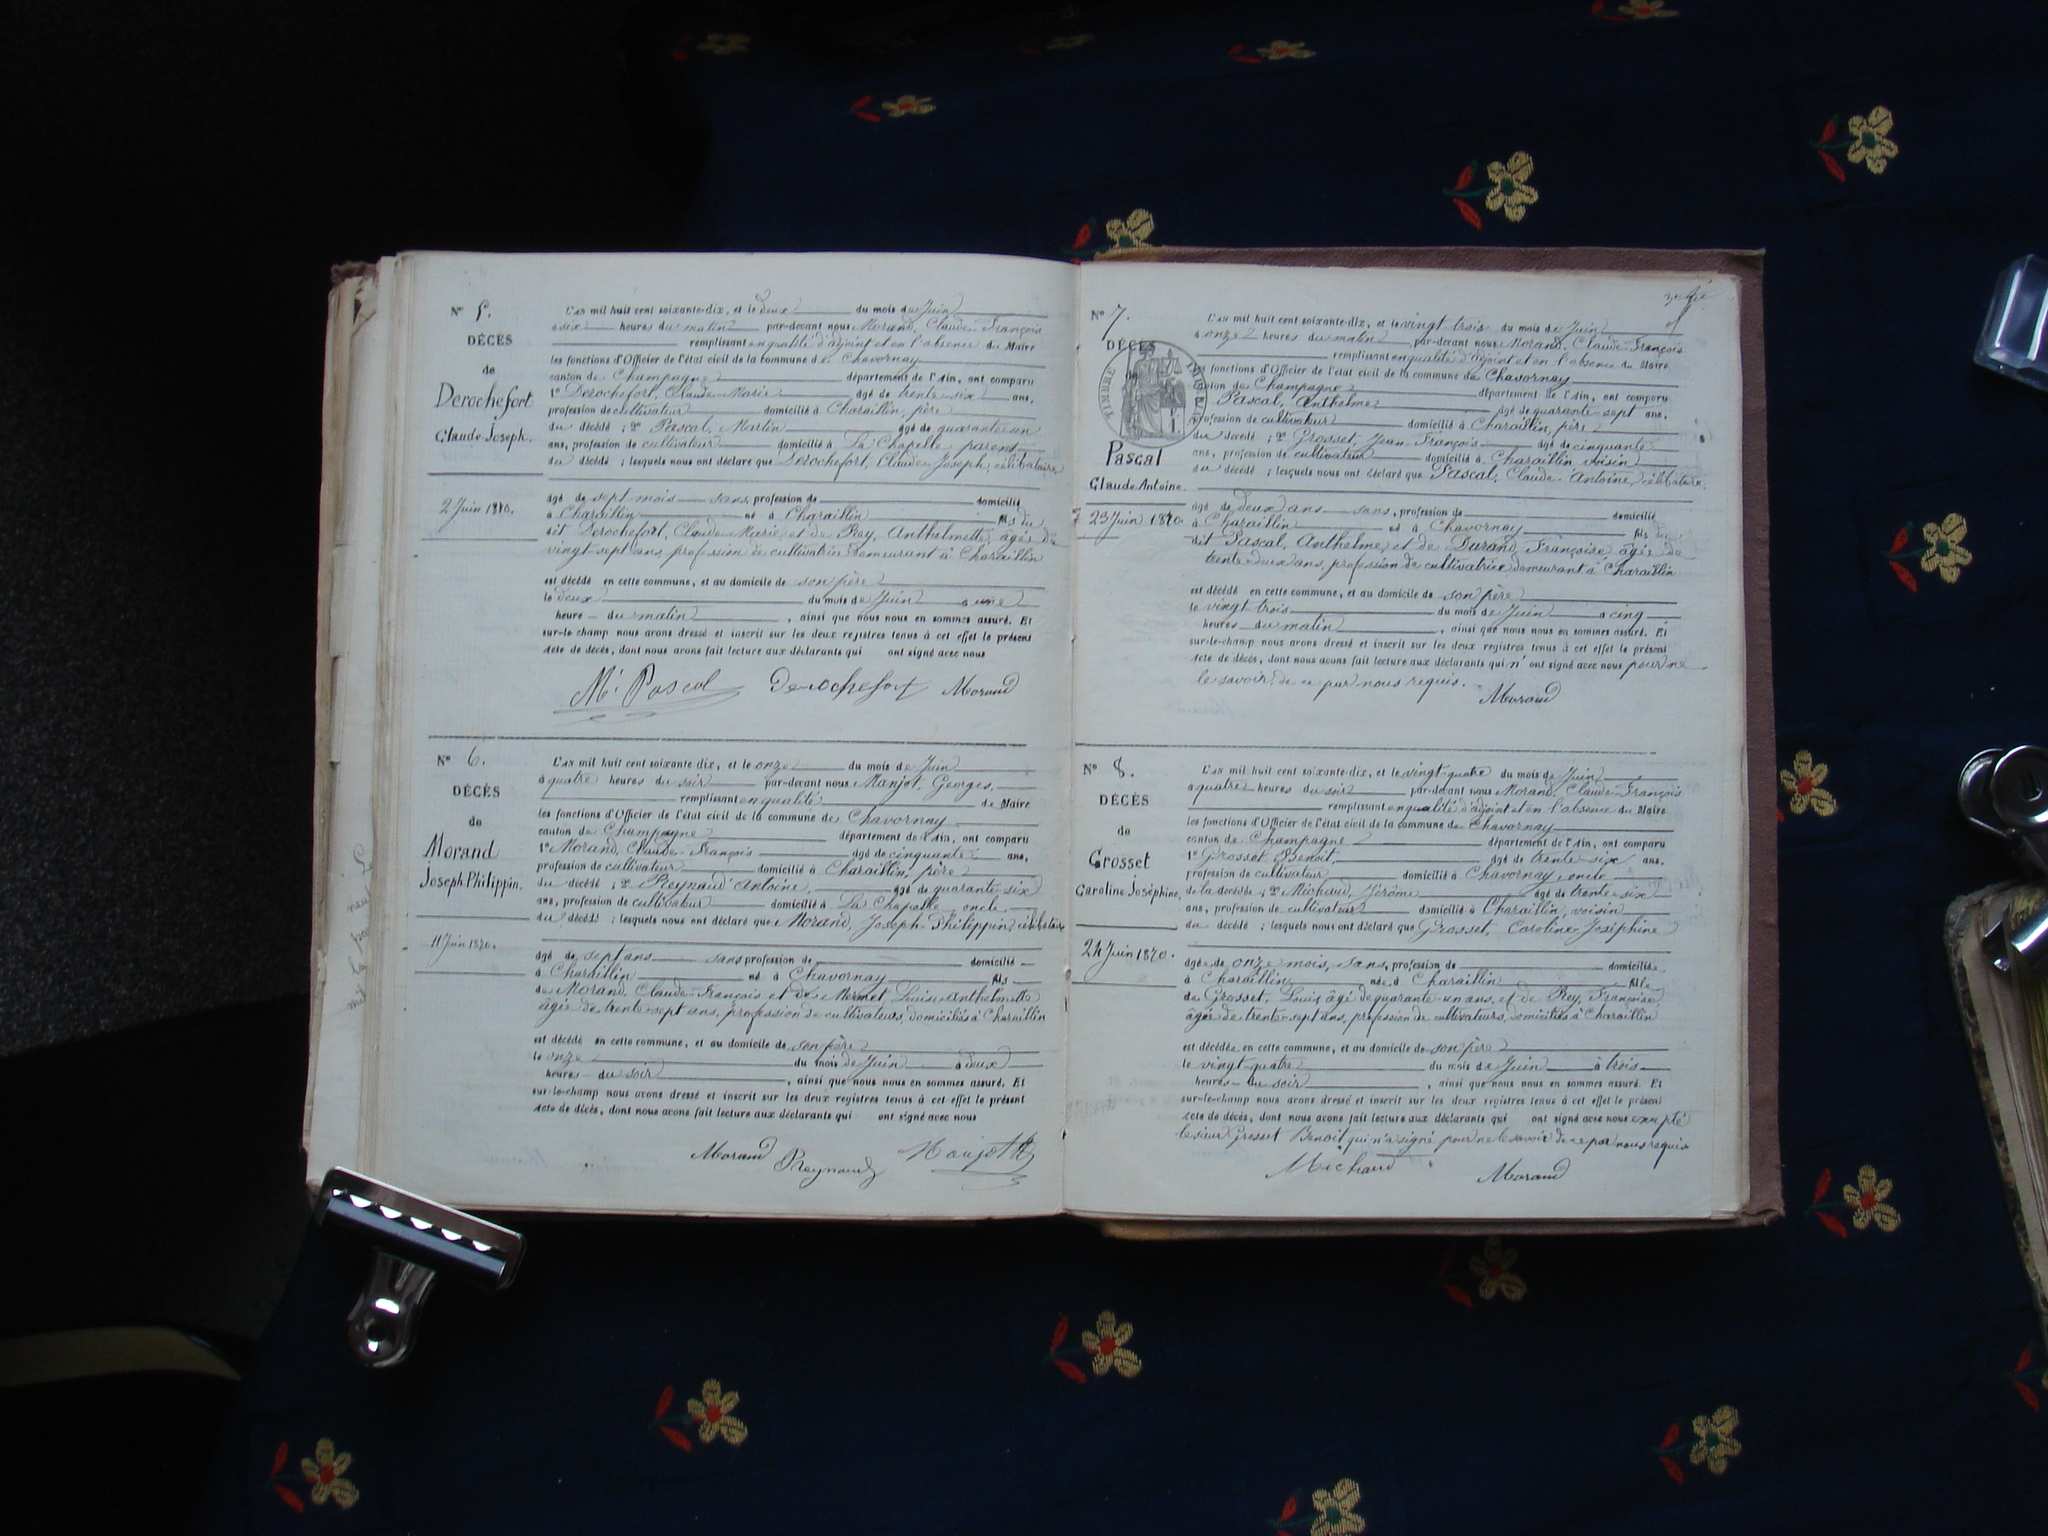 N° 5.
DÉCÈS
de
Derochefort
Claude Joseph.
2 Juin 1870.
L'an mil huit cent soixante-dix, et le deux du mois de Juin
à six heures du matin par-devant nous Morand, Claude-François
remplissant en qualité d'adjoint et en l'absence du Maire
les fonctions d'Officier de l'état civil de la commune de Chavornay
canton de Champagne département de l'Ain, ont comparu
1° Derochefort, Claude-Marie âgé de trente-six ans,
profession de cultivateur domicilié à Charaillin, père
du décédé ; 2° Pascal, Martin âgé de quarante un
ans, profession de cultivateur domicilié à La Chapelle parent
du décédé ; lesquels nous ont déclaré que Derochefort, Claude-Joseph, célibataire
âgé de sept mois sans profession de domicilié
à Charaillin né à Charaillin fils du
dit Derochefort, Claude-Marie et de Rey, Anthelmette, âgée de
vingt-sept ans, profession de cultivatrice demeurant à Charaillin
est décédé en cette commune, et au domicile de son père
le deux du mois de Juin à une
heure du matin, ainsi que nous nous en sommes assuré. Et
sur-le-champ nous avons dressé et inscrit sur les deux registres tenus à cet effet le présent
acte de décès, dont nous avons fait lecture aux déclarants qui ont signé avec nous
Mt Pascal Derochefort Morand
N° 6.
DÉCÈS
de
Morand
Joseph Philippin.
11 Juin 1870.
L'an mil huit cent soixante dix, et le onze du mois de Juin
à quatre heures du soir par-devant nous Manjot, Georges,
remplissant en qualité de Maire
les fonctions d'Officier de l'état civil de la commune de Chavornay
canton de Champagne département de l'Ain, ont comparu
1° Morand, Claude-François âgé de cinquante ans,
profession de cultivateur domicilié à Charaillin, père
du décédé ; 2° Reynaud Antoine, âgé de quarante-six
ans, profession de cultivateur domicilié à La Chapelle oncle
du décédé ; lesquels nous ont déclaré que Morand, Joseph-Philippin célibataire
âgé de sept ans sans profession de domicilié
à Charaillin né à Chavornay fils
de Morand, Claude-François et de Mermet, Louise-Anthelmette
âgée de trente-sept ans, profession de cultivateurs, domiciliés à Charaillin
est décédé en cette commune, et au domicile de son père
le onze du mois de Juin à deux
heures du soir, ainsi que nous nous en sommes assuré. Et
sur-le-champ nous avons dressé et inscrit sur les deux registres tenus à cet effet le présent
acte de décès, dont nous avons fait lecture aux déclarants qui ont signé avec nous
Morand Reynaud Manjot
N° 7.
DÉCÈS
TIMBRE IMPERIAL
Pascal
Claude-Antoine.
23 Juin 1870.
L'an mil huit cent soixante-dix, et le vingt trois du mois de Juin
à onze heures du matin, par-devant nous Morand, Claude-François
remplissant en qualité d'adjoint et en l'absence du Maire
les fonctions d'Officier de l'état civil de la commune de Chavornay
canton de Champagne département de l'Ain, ont comparu
Pascal, Anthelme âgé de quarante-sept ans,
profession de cultivateur domicilié à Charaillin, père
du décédé ; 2° Grosset, Jean-François âgé de cinquante
ans, profession de cultivateur domicilié à Charaillin, voisin
du décédé ; lesquels nous ont déclaré que Pascal, Claude-Antoine, célibataire
âgé de deux ans sans profession de domicilié
à Charaillin né à Chavornay fils du
dit Pascal, Anthelme, et de Durand, Françoise âgée de
trente-deux ans, profession de cultivatrice demeurant à Charaillin
est décédé en cette commune, et au domicile de son père
le vingt trois du mois de Juin à cinq
heures du matin, ainsi que nous nous en sommes assuré. Et
sur-le-champ nous avons dressé et inscrit sur les deux registres tenus à cet effet le présent
acte de décès, dont nous avons fait lecture aux déclarants qui n'ont signé avec nous pour ne
le savoir, de ce par nous requis.
Morand
N° 8.
DÉCÈS
de
Grosset
Caroline Joséphine,
24 Juin 1870.
L'an mil huit cent soixante-dix, et le vingt-quatre du mois de Juin
à quatre heures du soir par-devant nous Morand, Claude-François
remplissant en qualité d'adjoint et en l'absence du Maire
les fonctions d'Officier de l'état civil de la commune de Chavornay
canton de Champagne département de l'Ain, ont comparu
1° Grosset Benoit, âgé de trente-six ans,
profession de cultivateur domicilié à Chavornay, oncle
de la décédée ; 2° Michaud, Jérôme âgé de trente-six
ans, profession de cultivateur domicilié à Charaillin, voisin
du décédé ; lesquels nous ont déclaré que Grosset, Caroline-Joséphine
âgée de onze mois, sans profession de domiciliée
à Charaillin née à Charaillin fille
de Grosset, Louis âgé de quarante-un ans, et de Rey, Françoise
âgée de trente-sept ans, profession de cultivateurs, domiciliés à Charaillin
est décédée en cette commune, et au domicile de son père
le vingt-quatre du mois de Juin à trois
heures du soir, ainsi que nous nous en sommes assuré. Et
sur-le-champ nous avons dressé et inscrit sur les deux registres tenus à cet effet le présent
acte de décès, dont nous avons fait lecture aux déclarants qui ont signé avec nous excepté
le sieur Grosset Benoit qui n'a signé pour ne le savoir de ce par nous requis
Michaud Morand